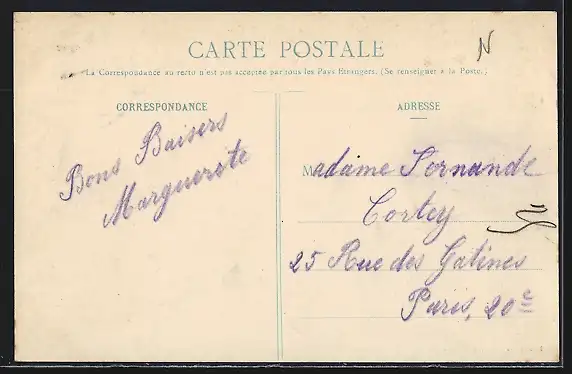 CARTE POSTALE
La Correspondance au recto n'est pas acceptée par tous les Pays Etrangers. (Se renseigner à la Poste.)
CORRESPONDANCE
Bons Baisers
Marguerite
ADRESSE
Madame Fernande
Cortey
25 Rue des Gatines
Paris, 20e
N